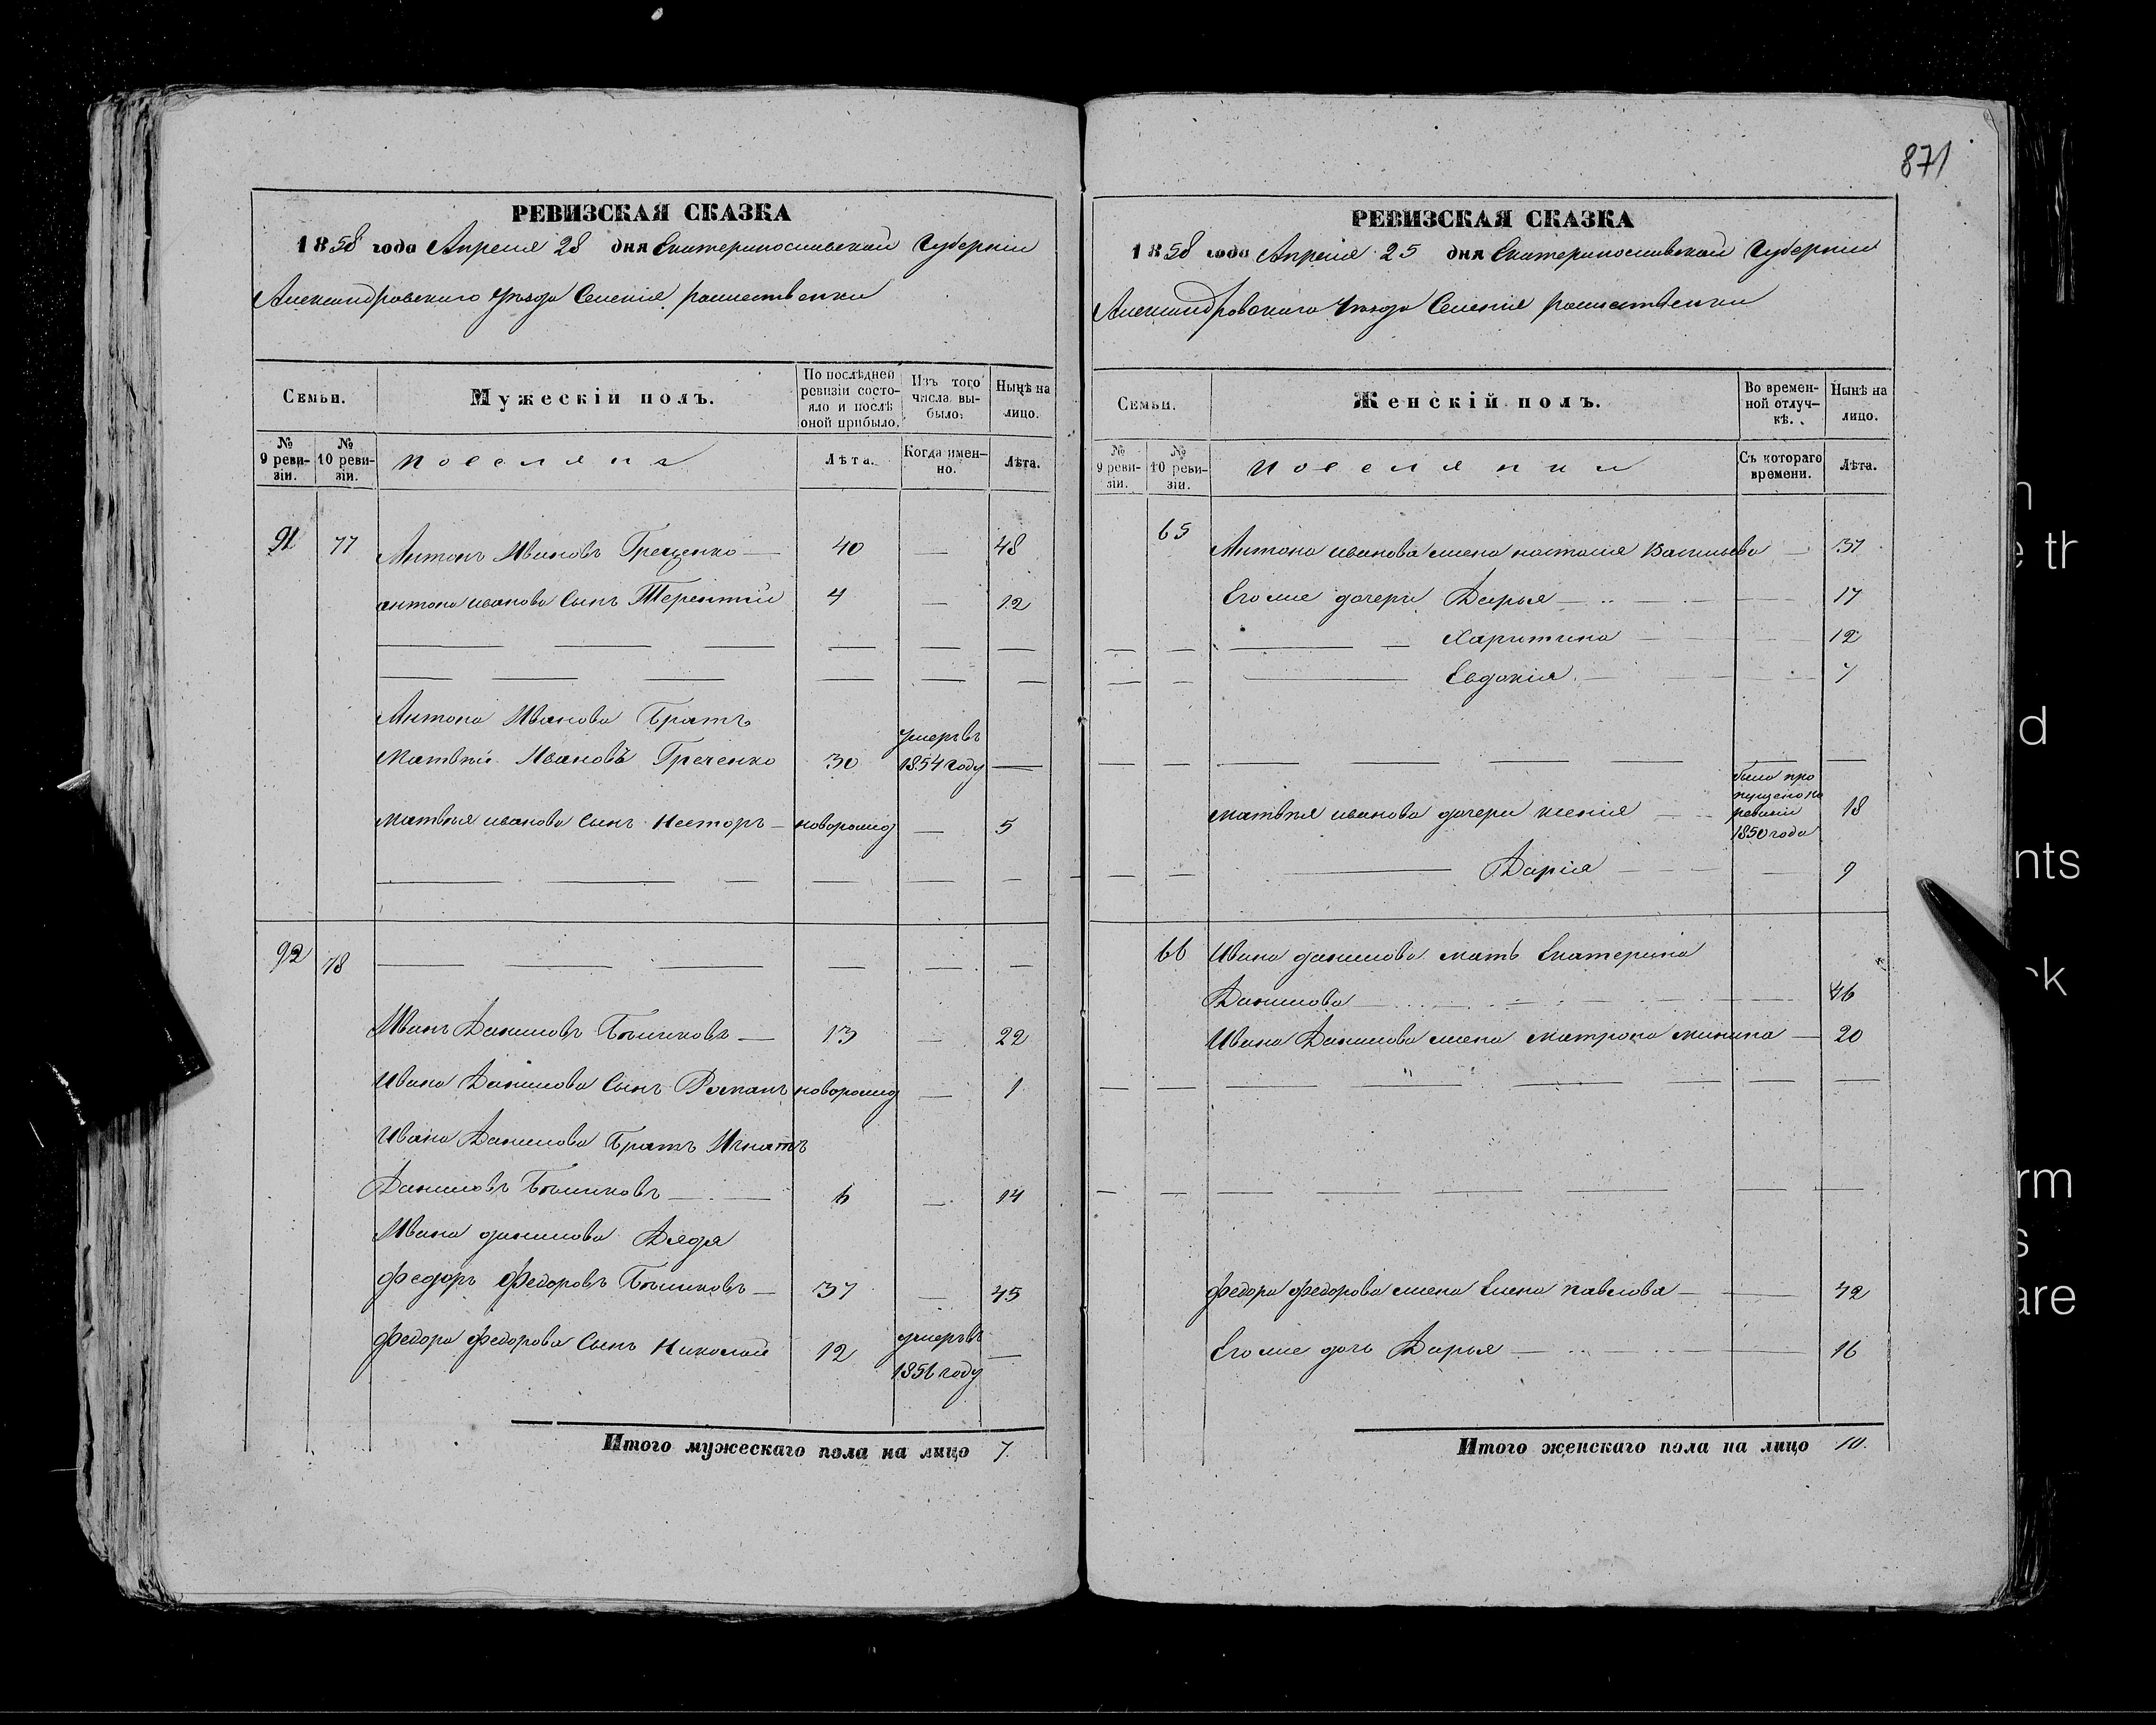 871
РЕВИЗСКАЯ СКАЗКА
1858 года Апреля 28 дня Екатеринославской Губерніи
Александровского уезда Селенія рожественки
Семьи.
Мужескій полъ.
По послѣдней ревизіи состо-яло и послѣ оной прибыло.
Изъ того числа вы-было:
Нынѣ на лицо.
№ 9 реви-зіи.
№ 10 реви-зіи.
Поселяна
Лѣта.
Когда имен-но.
Лѣта.
91 77 Антонъ Ивановъ Греченко — 40 — 48
антона иванова Сынъ Терентій 4 — 12
Антона Иванова Братъ
Матвѣй Ивановъ Греченко 30 умеръ въ 1854 году —
матвѣя иванова Сынъ Несторъ — поворожд — 5
92 78
Иванъ Даниловъ — 13 — 22
Ивана Данилова Сынъ Романъ новорожд — 1
Ивана Данилова Братъ Игнатъ
Даниловъ — 6 — 14
Ивана данилова Дядя
Федоръ Федоровъ — 37 — 45
Федора Федорова Сынъ Николай 12 умеръ въ 1856 году —
Итого мужескаго пола на лицо 7.
РЕВИЗСКАЯ СКАЗКА
1858 года Апреля 25 дня Екатеринославской Губерніи
Александровского уезда Селенія рожественки
Семьи.
Женскій полъ.
Во времен-ной отлуч-кѣ.
Нынѣ на лицо.
№ 9 реви-зіи.
№ 10 реви-зіи.
Поселянки
Съ котораго времени.
Лѣта.
65 Антона иванова жена наталія Васильева — 37
Его же дочери Дарья — 17
Харитина — 12
Евдокія — 7
матвѣя иванова дочери ксенія — было пропущено по ревизіи 1850 года 18
Дарія — 9
66 Ивана данилова мать Екатерина
Данилова — 46
Ивана Данилова жена матрона минина — 20
Федора Федорова жена Елена павлова — 42
Его же дочь Дарья — 16
Итого женскаго пола на лицо 10.